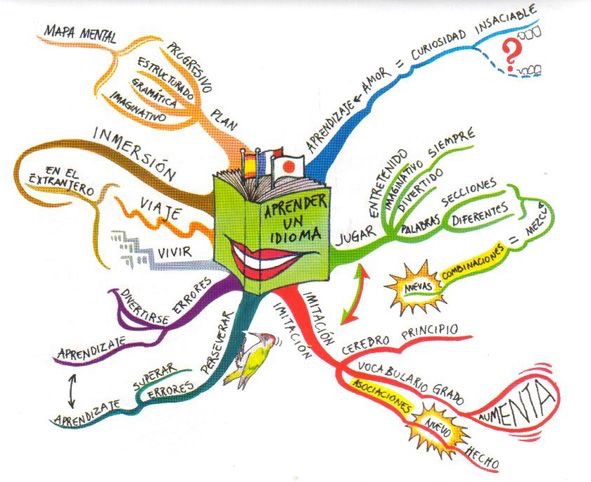 MAPA MENTAL
PROGRESIVO
ESTRUCTURADO
GRAMÁTICA
IMAGINATIVO
PLAN
APRENDIZAJE
AMOR = CURIOSIDAD INSACIABLE
?
INMERSIÓN
EN EL
EXTRANJERO
VIAJE
VIVIR
APRENDER
UN
IDIOMA
JUGAR
ENTRETENIDO
IMAGINATIVO
DIVERTIDO
SIEMPRE
PALABRAS
SECCIONES
DIFERENTES
= MEZCLA
NUEVAS
COMBINACIONES
DIVERTIRSE
ERRORES
APRENDIZAJE
PERSEVERAR
SUPERAR
ERRORES
APRENDIZAJE
IMITACIÓN
IMITACIÓN
CEREBRO PRINCIPIO
VOCABULARIO GRADO
AUMENTA
ASOCIACIONES
NUEVO
HECHO